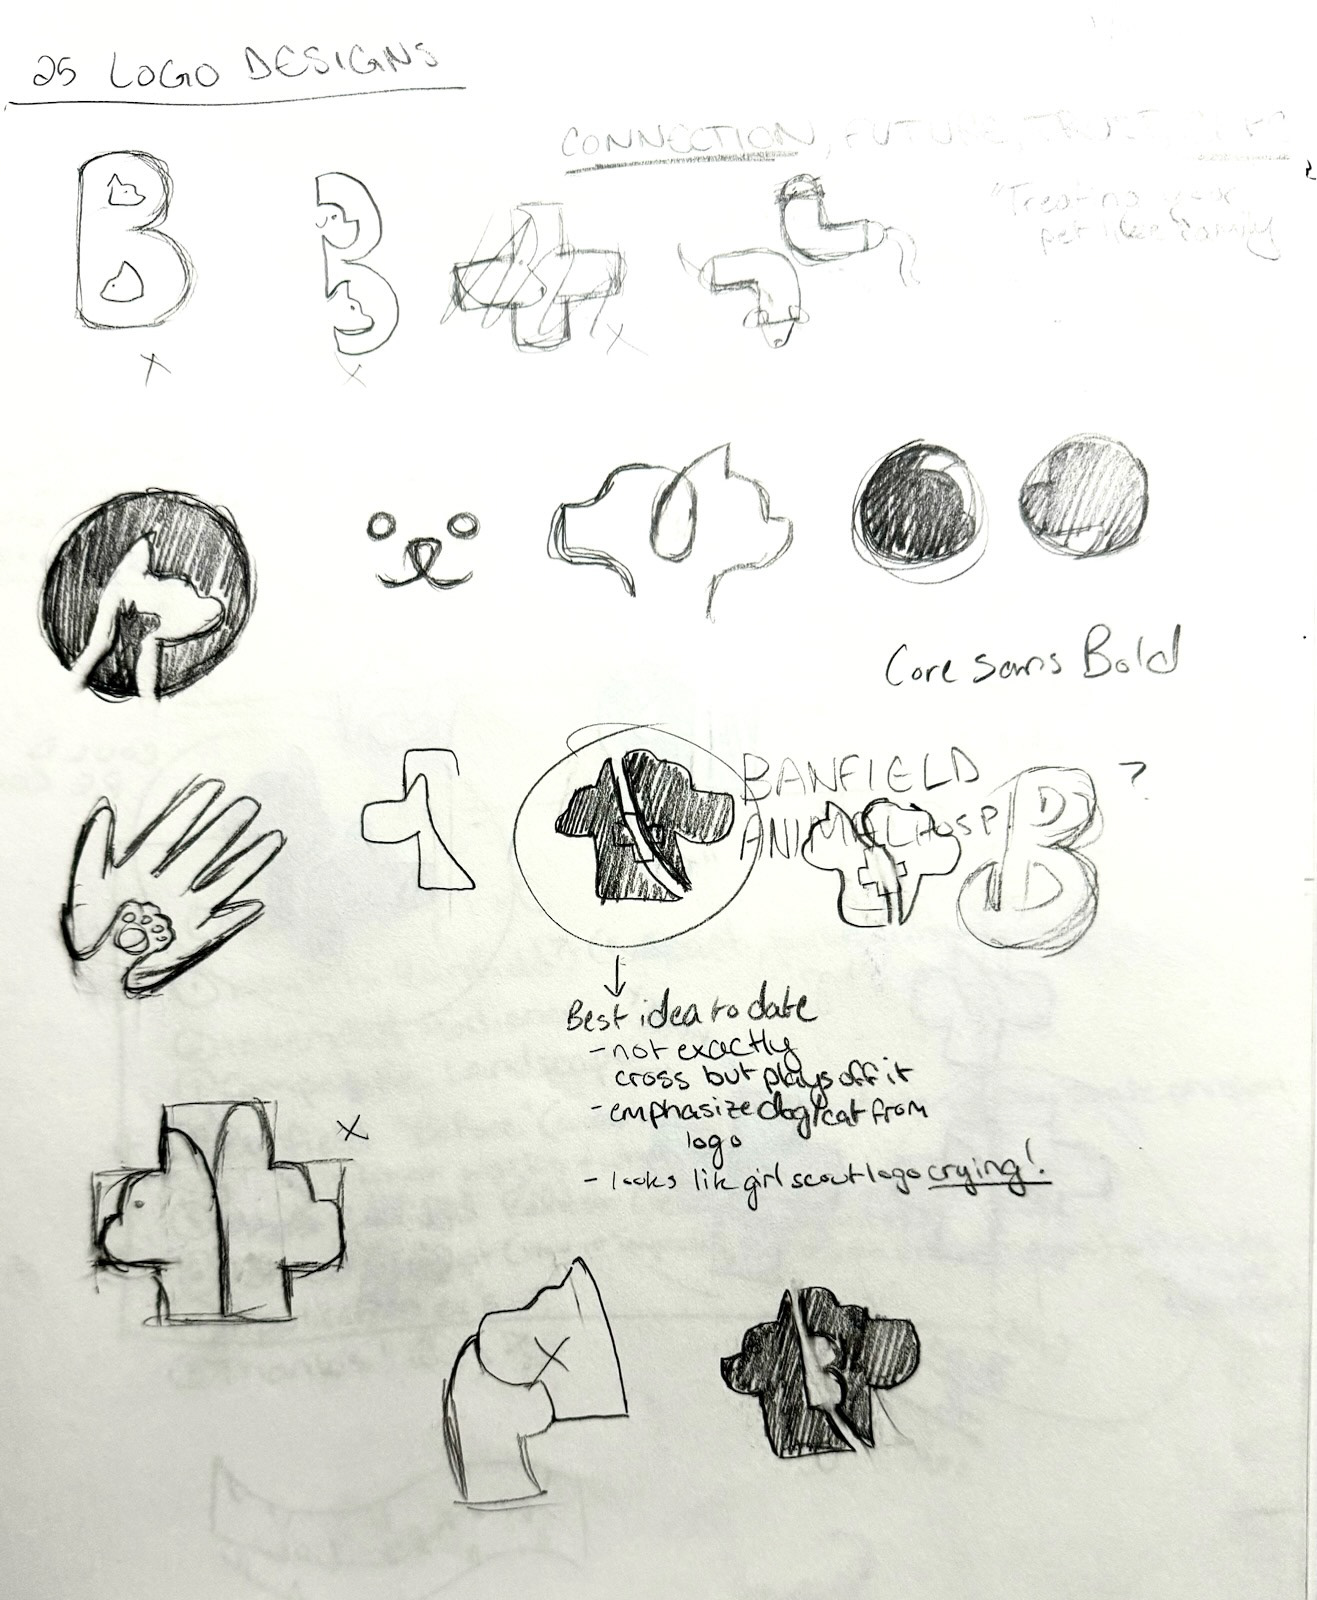 25 LOGO DESIGNS
CONNECTION, FUTURE, TRUST,
"Treating your
pet like family
Core Sans Bold
BANFIELD
ANIMAL HOSP
?
B
Best idea to date
- not exactly
cross but plays off it
- emphasize dog/cat from
logo
- looks like girl scout logo crying!